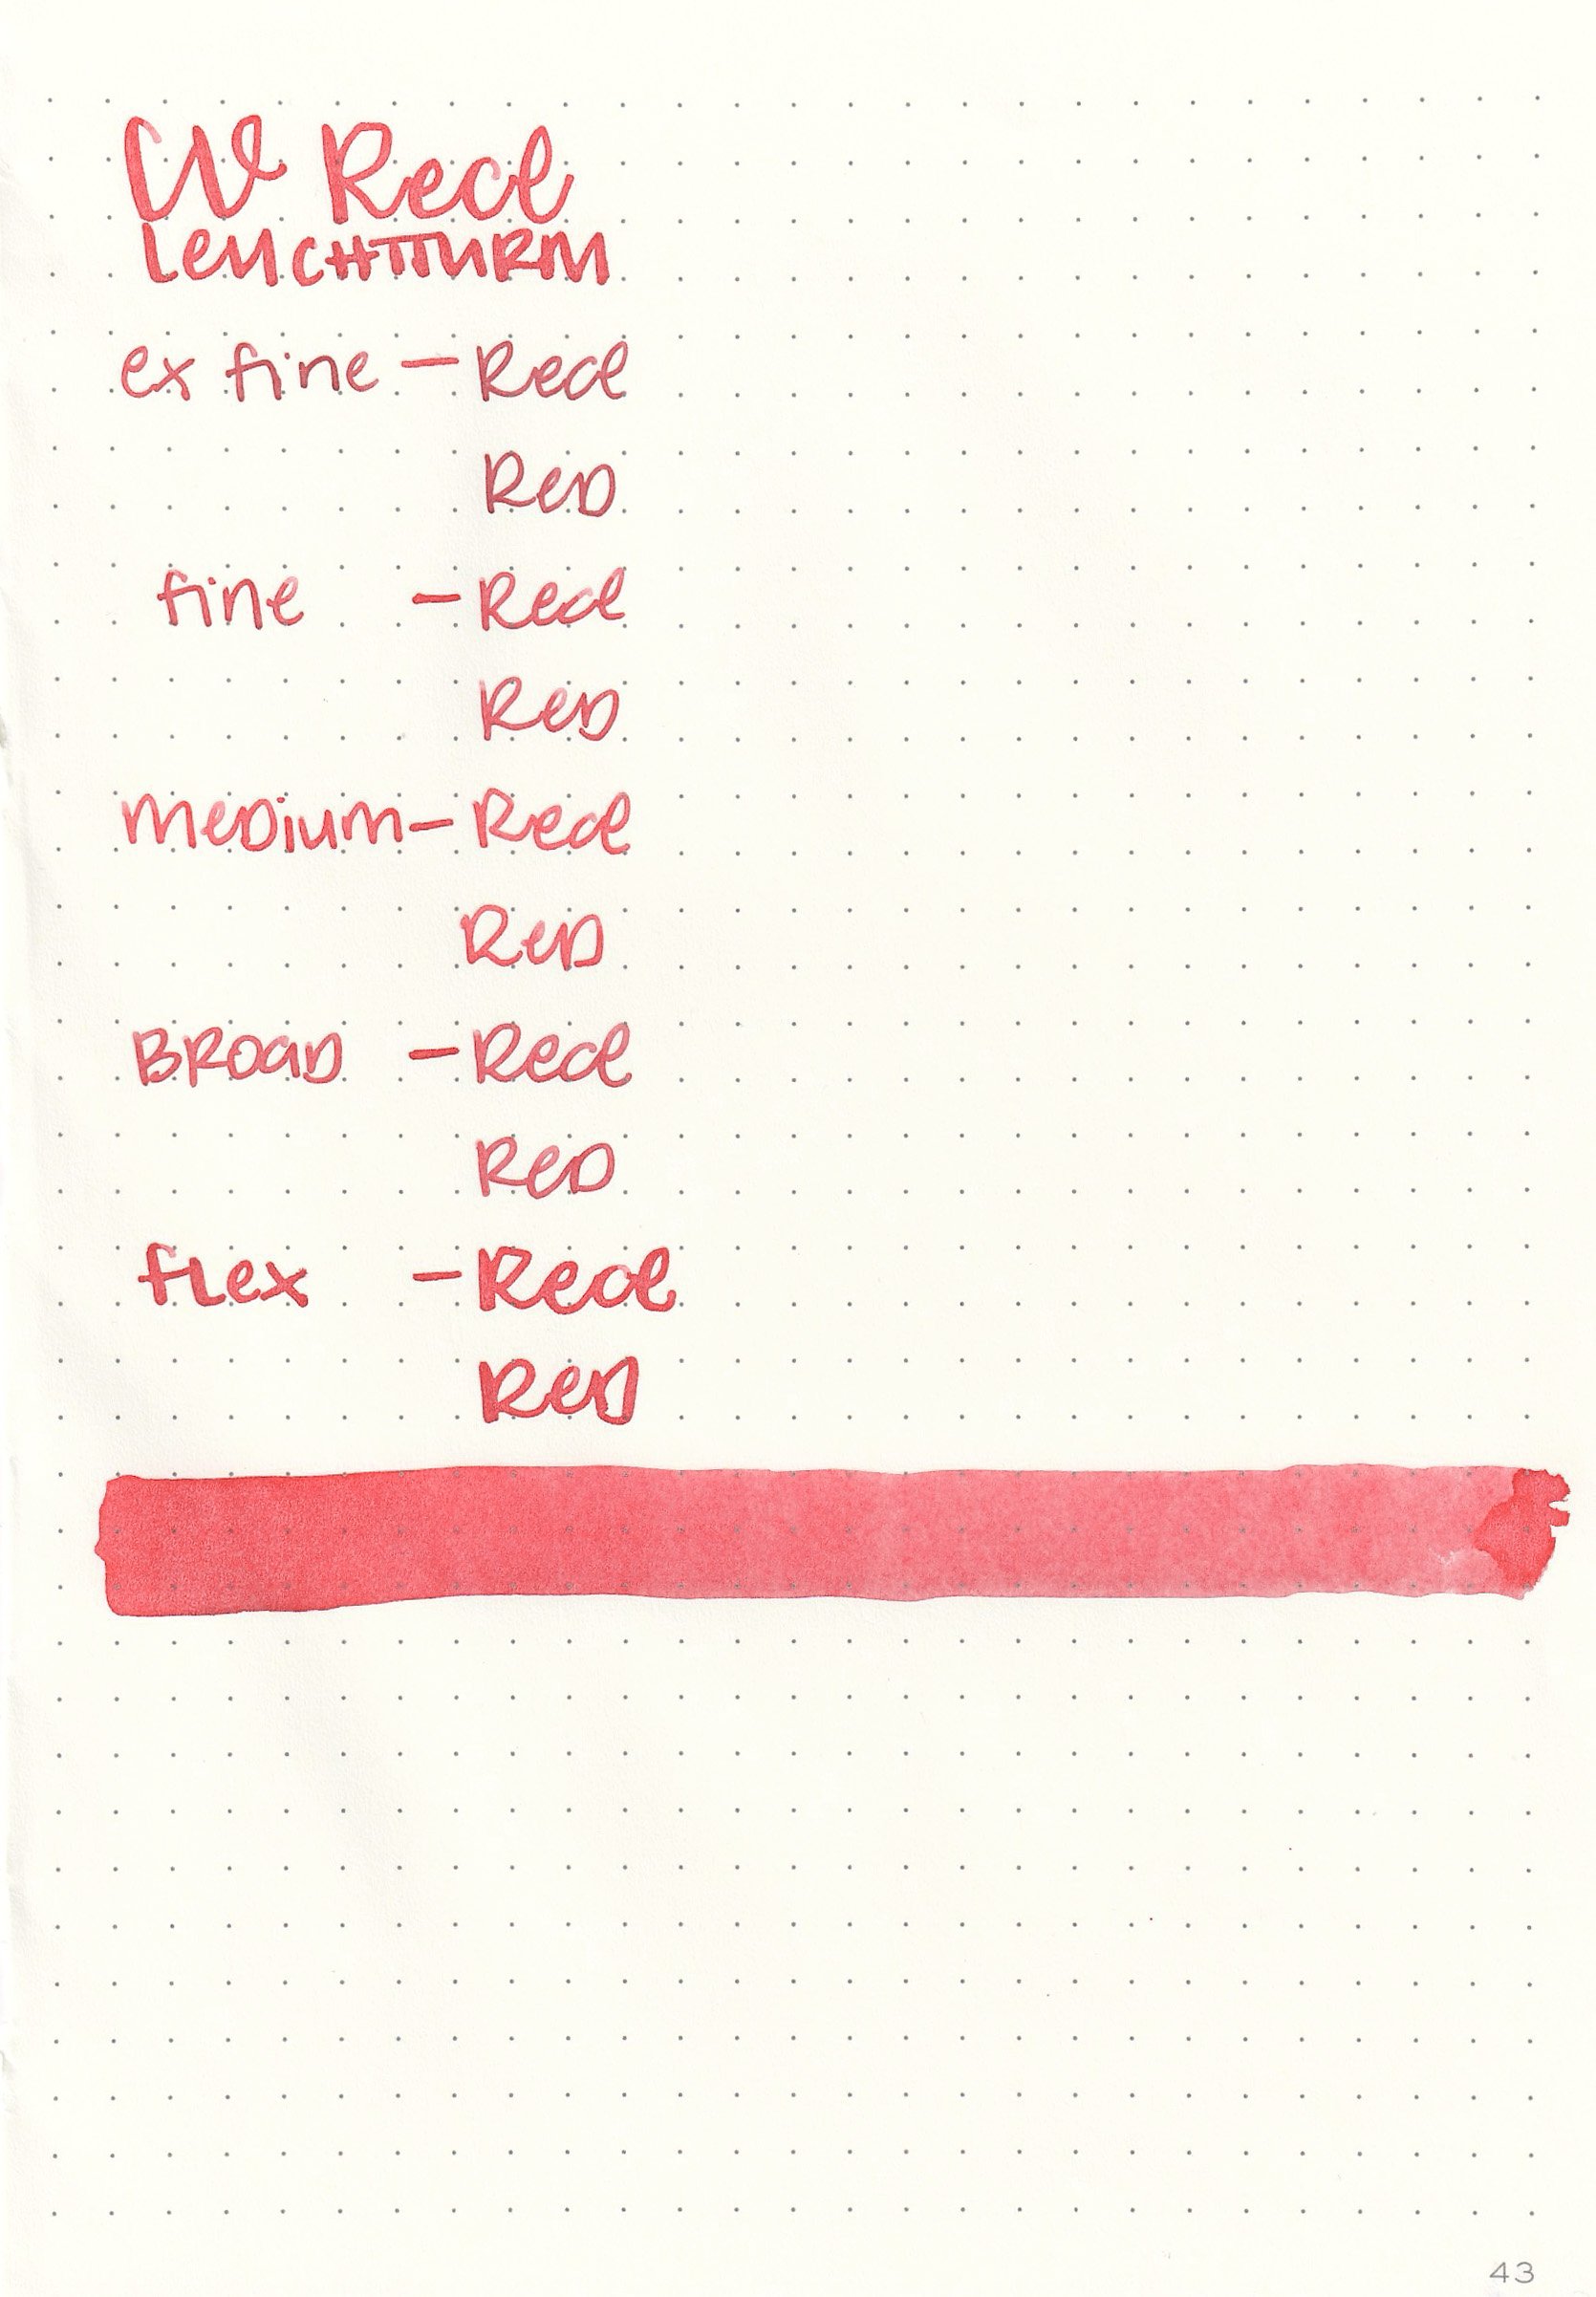 W Red
LEUCHTTURM
ex fine – Red
Red
fine – Red
Red
meDium – Red
Red
BROAD – Red
Red
fLex – Red
Red
43